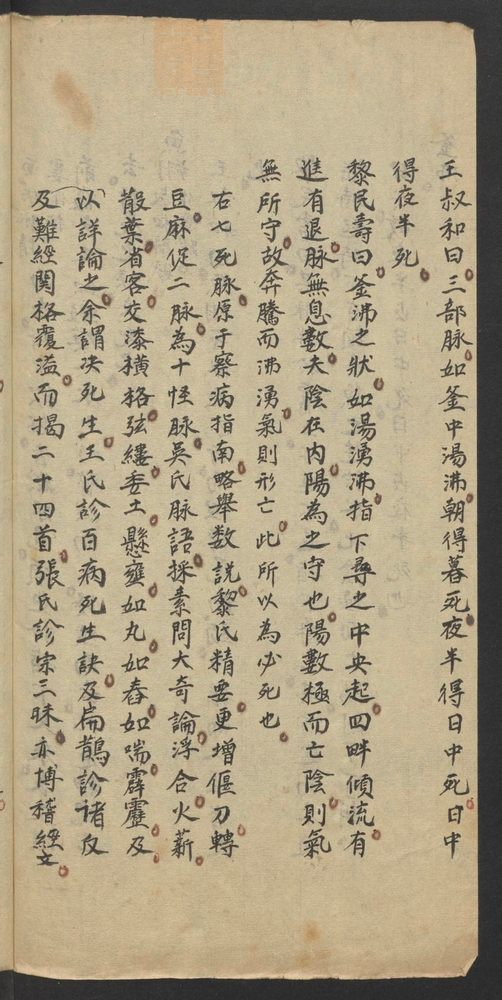 王叔和曰三部脉如釜中湯沸朝得暮死夜半得日中死日中
得夜半死
黎民壽曰釜沸之狀如湯湧沸指下尋之中央起四畔傾流有
進有退脉無息數夫陰在内陽為之守也陽數極而亡陰則氣
無所守故奔騰而沸湧氣則形亡此所以為必死也
右七死脉原于察病指南略舉數說黎氏精要更增偃刀轉
豆麻促二脉為十怪脉吳氏脉語採素問大奇論浮合火薪
散葉省客交漆橫格弦縷委土懸雍如丸如舂如喘霹靂及
以詳論之余謂决死生王氏診百病死生訣及扁鵲診諸反
及難經関格覆溢而揭二十四首張氏診宗三昧亦博稽經文